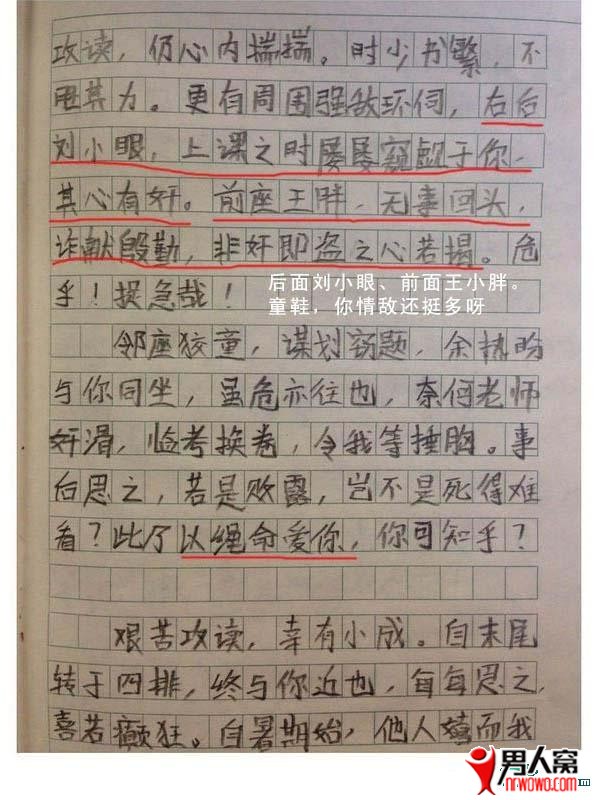 攻读，仍心内揣揣。时少书繁，不
甩其力。更有周围强敌环伺，右后
刘小眼，上课之时屡屡窥觑于你，
其心有奸。前座王胖，无事回头，
诈献殷勤，非奸即盗之心若揭。危
乎！损急哉！
后面刘小眼、前面王小胖。
童鞋，你情敌还挺多呀
邻座狡童，谋划窃题，余热盼
与你同坐，虽危亦往也，奈何老师
奸滑，临考换卷，令我等捶胸。事
后思之，若是败露，岂不是死得难
看？此乃以绳命爱你，你可知乎？
艰苦攻读，幸有小成。自末尾
转于四排，终与你近也，每每思之，
喜若癫狂。自暑期始，他人嬉而我
男人窝
nrwowo.com